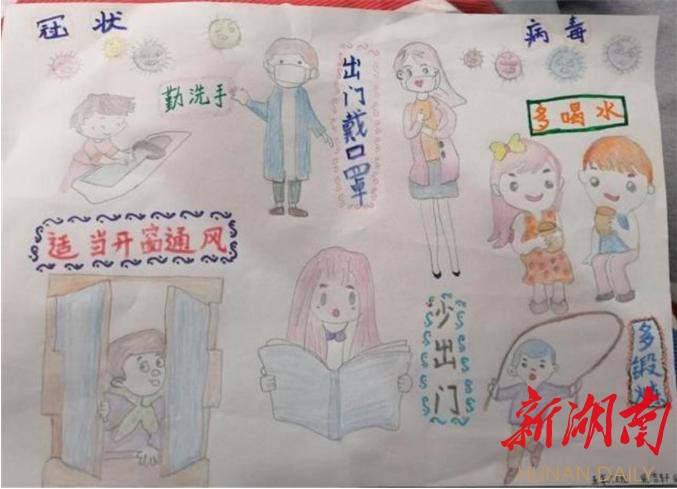 冠状
病毒
勤洗手
出门戴口罩
多喝水
适当开窗通风
少出门
多锻炼
新湖南
HUNAN DAILY